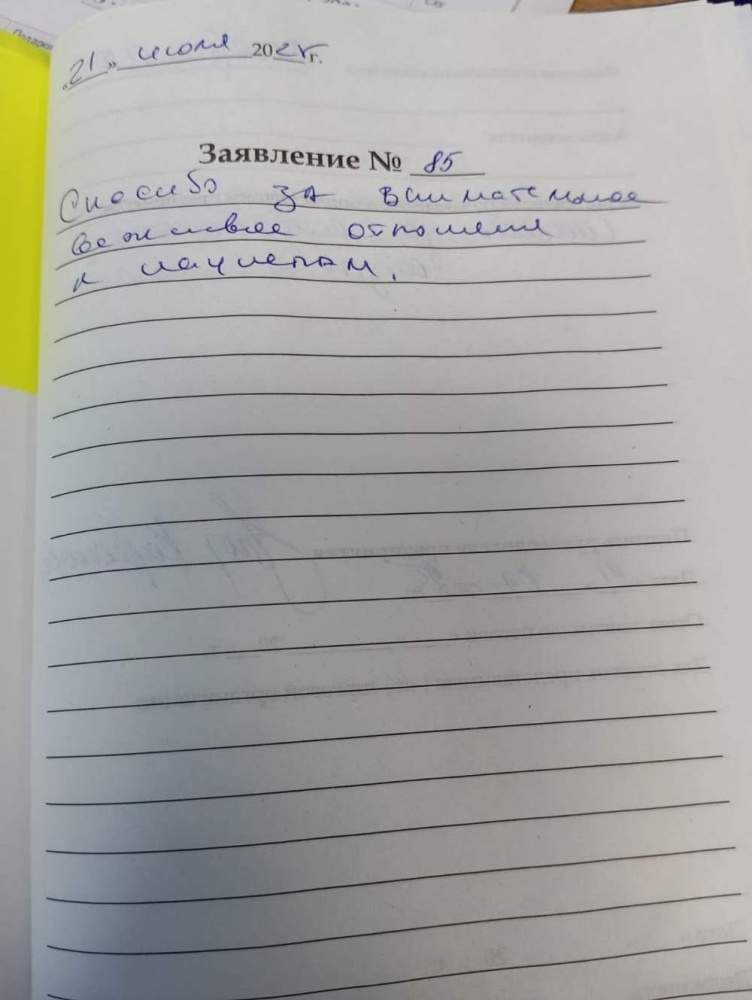 «21» июля 2025 г.
Заявление № 85
Спасибо за внимательное
вежливое отношение
к пациентам.